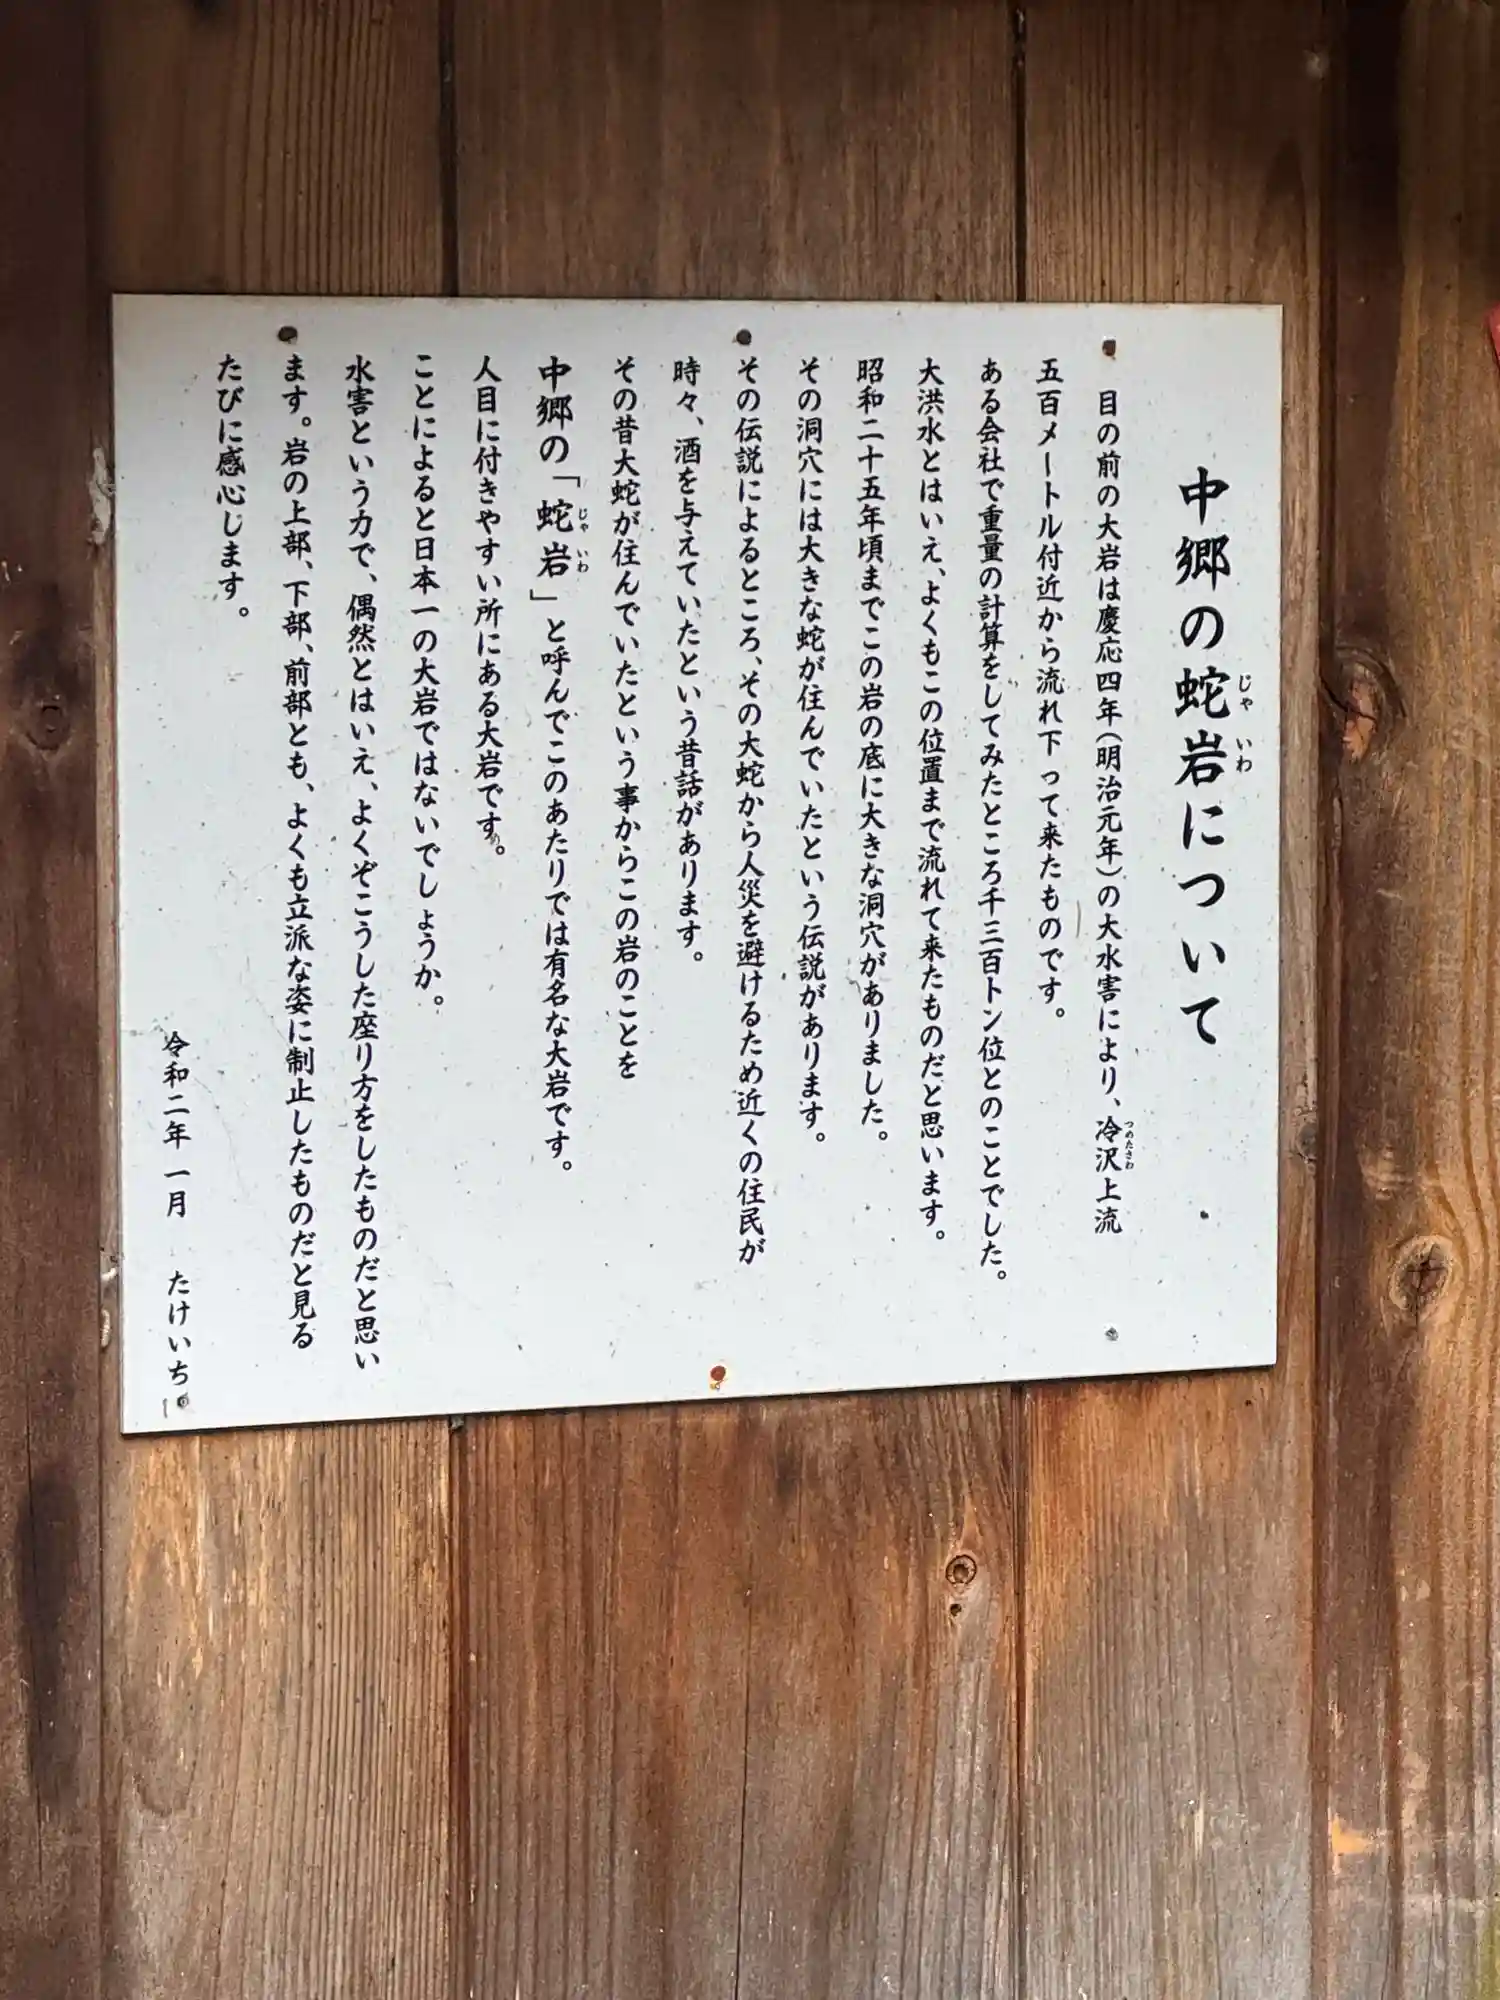 中郷の蛇岩について
じゃ いわ
目の前の大岩は慶応四年(明治元年)の大水害により、冷沢上流
つめたさわ
五百メートル付近から流れ下って来たものです。
ある会社で重量の計算をしてみたところ千三百トン位とのことでした。
大洪水とはいえ、よくもこの位置まで流れて来たものだと思います。
昭和二十五年頃までこの岩の底に大きな洞穴がありました。
その洞穴には大きな蛇が住んでいたという伝説があります。
その伝説によるところ、その大蛇から人災を避けるため近くの住民が
時々、酒を与えていたという昔話があります。
その昔大蛇が住んでいたという事からこの岩のことを
中郷の「蛇岩」と呼んでこのあたりでは有名な大岩です。
じゃ いわ
人目に付きやすい所にある大岩です。
ことによると日本一の大岩ではないでしょうか。
水害という力で、偶然とはいえ、よくぞこうした座り方をしたものだと思い
ます。岩の上部、下部、前部とも、よくも立派な姿に制止したものだと見る
たびに感心します。
令和二年一月 たけいち